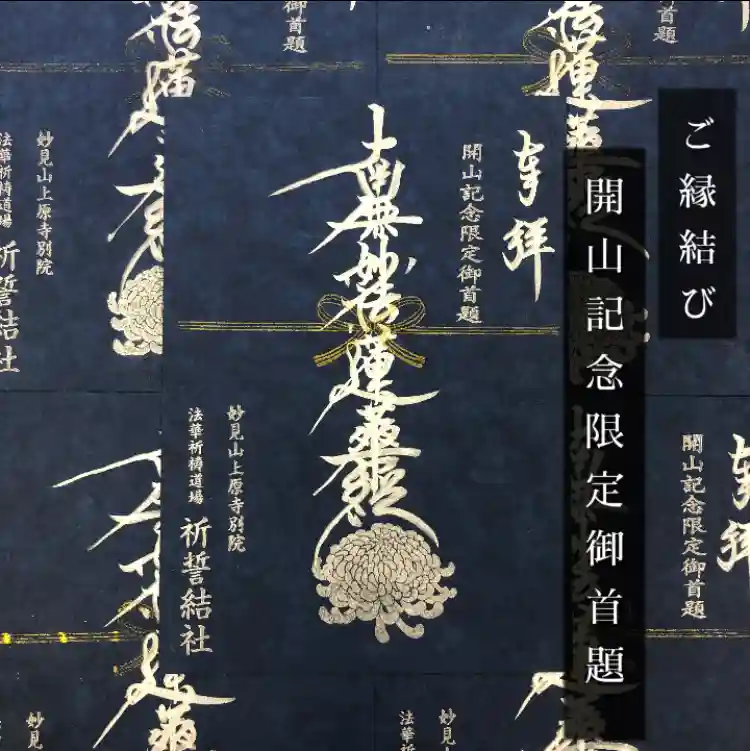 ご縁結び
開山記念限定御首題
奉拝
開山記念限定御首題
南無妙法蓮華經
妙見山上原寺別院
法華祈禱道場
祈誓結社
首題
御首題
妙見山上原寺別院
法華祈禱道場
祈誓結社
奉拝
開山記念限定御首題
妙見
法華祈
妙見